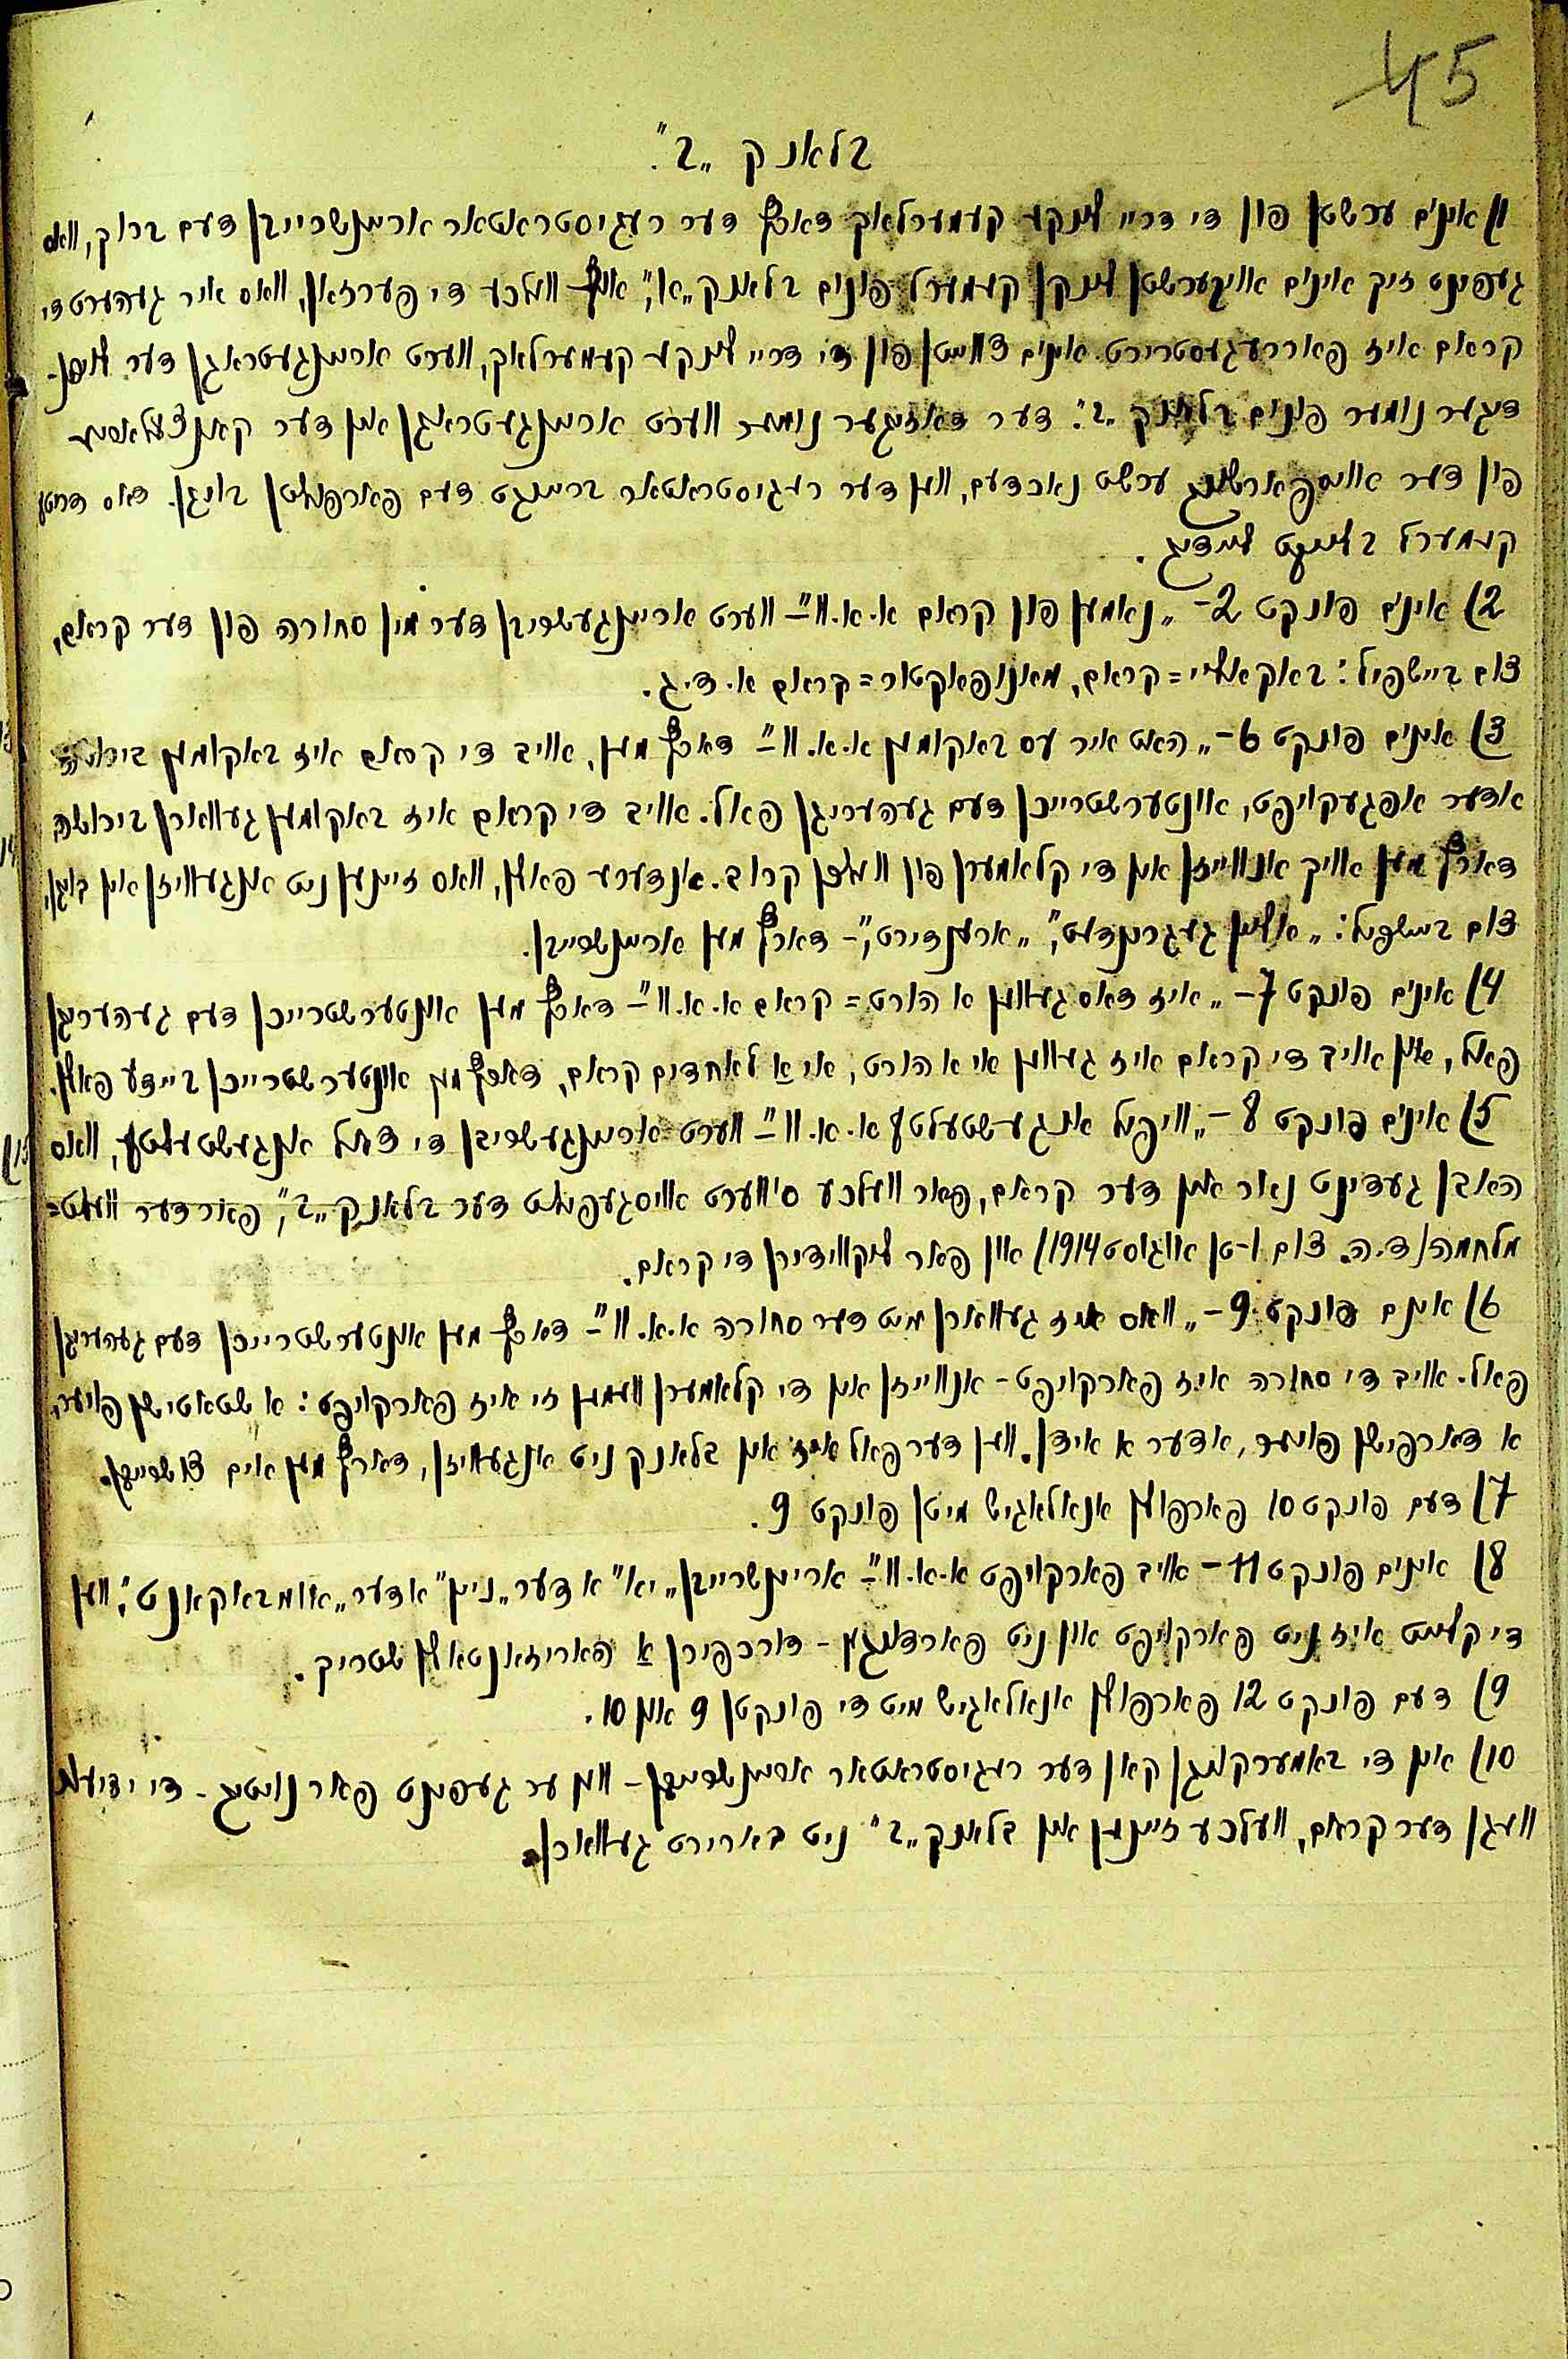 45
בלאנק „ב".
1) אינים ערשטן פון די דריי לינקע קעמערלאך דארף דער רעגיסטראטאר אריינשרייבן דעם ברוך, וואס
געפינט זיך אינים אויבערשטן לינקן קעמערל פונים בלאנק „א", אויף וועלכע די פערזאן, וואס איר געהערט די
קראם איז פאררעגעסטרירט. אינים צווייטן פון די דריי לינקע קעמערלאך, ווערט אריינגעטראגן דער לויפן-
דיגער נומער פונים בלאנק „ב". דער דאזיגער נומער ווערט אריינגעטראגן אין דער קאנצעלאריע
פון דער אויספארשונג ערשט נאכדעם, ווען דער רעגיסטראטאר ברענגט דעם פארפולטן בויגן. דאס דריטע
קעמערל בלייבט ליידיג.
2) אינים פונקט 2 – „נאמען פון קראם א. א. וו" – ווערט אריינגעשריבן דער מין סחורה פון דער קראם,
צום ביישפיל: באקאליי=קראם, מאנופאקטור=קראם א. ד. ג.
3) אינים פונקט 6 – „האט איר עס באקומען א. א. וו" – דארף מען, אויב די קראם איז באקומען בירושה
אדער אפגעקויפט, אונטערשטרייכן דעם געהעריגן פאל. אויב די קראם איז באקומען געווארן בירושה
דארף מען אויך אנווייזן אין די קלאמערן פון וועלכן קרוב. אנדערע פאלן, וואס זיינען ניט אנגעוויזן אין בויגן,
צום ביישפיל: „אליין געגרינדעט", „ארענדירט", – דארף מען אריינשרייבן.
4) אינים פונקט 7 – „איז דאס געווען א הורט=קראם א. א. וו" – דארף מען אונטערשטרייכן דעם געהעריגן
פאל, און אויב די קראם איז געווען אי א הורט, אי א לאחדים קראם, דארף מען אונטערשטרייכן ביידע פאלן.
5) אינים פונקט 8 – „וויפיל אנגעשטעלטע א. א. וו" – ווערט אריינגעשריבן די צאל אנגעשטעלטע, וואס
האבן געדינט נאר אין דער קראם, פאר וועלכע ס'ווערט אויסגעפילט דער בלאנק „ב", פאר דער וועלט=
מלחמה (ד. ה. צום 1-טן אווגוסט 1914) און פאר ליקווידירן די קראם.
6) אינים פונקט 9 – „וואס איז געווארן מיט דער סחורה א. א. וו" – דארף מען אונטערשטרייכן דעם געהעריגן
פאל. אויב די סחורה איז פארקויפט – אנווייזן אין די קלאמערן וועמען זי איז פארקויפט: א שטאטישן פויער,
א דארפישן פויער, אדער א אידן. ווען דער פאל איז אין בלאנק ניט אנגעוויזן, דארף מען אים צושרייבן.
7) דעם פונקט 10 פארפולן אנאלאגיש מיטן פונקט 9.
8) אינים פונקט 11 – אויב פארקויפט א. א. וו" – אריינשרייבן „יא" אדער „ניין" אדער „אומבאקאנט", ווען
די קלייט איז ניט פארקויפט און ניט פארדונגען – דורכפירן א האריזאנטאלן שטריך.
9) דעם פונקט 12 פארפולן אנאלאגיש מיט די פונקטן 9 און 10.
10) אין די באמערקונגן קאן דער רעגיסטראטאר אריינשרייבן – ווען ער געפינט פאר נויטיג – די ידיעות
וועגן דער קראם, וועלכע זיינען אין בלאנק „ב" ניט בארירט געווארן.